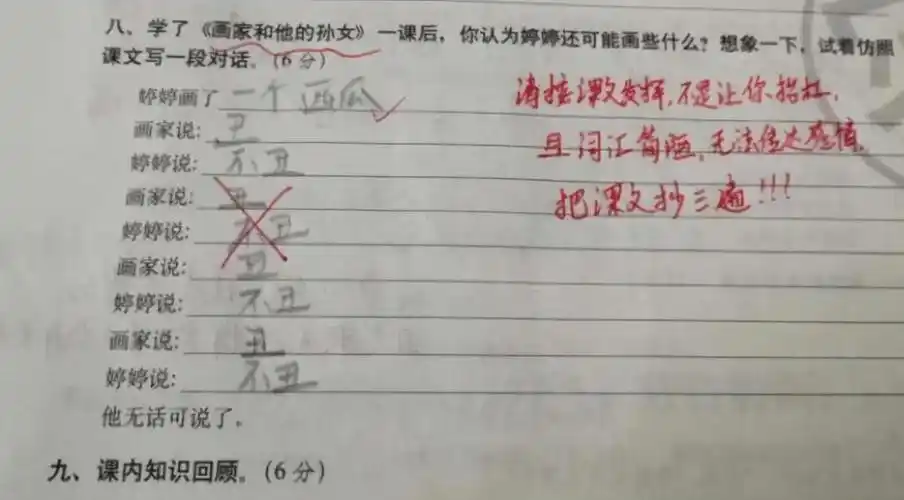 八、学了《画家和他的孙女》一课后，你认为婷婷还可能画些什么？想象一下，试着仿照
课文写一段对话。(6分)
婷婷画了 一个西瓜
画家说: 丑
婷婷说: 不丑
画家说: 丑
婷婷说: 不丑
画家说: 丑
婷婷说: 不丑
画家说: 丑
婷婷说: 不丑
他无话可说了。
请按课文发挥,不是让你抬杠,
且词汇简陋,无法传达感情,
把课文抄三遍!!!
九、课内知识回顾。(6分)